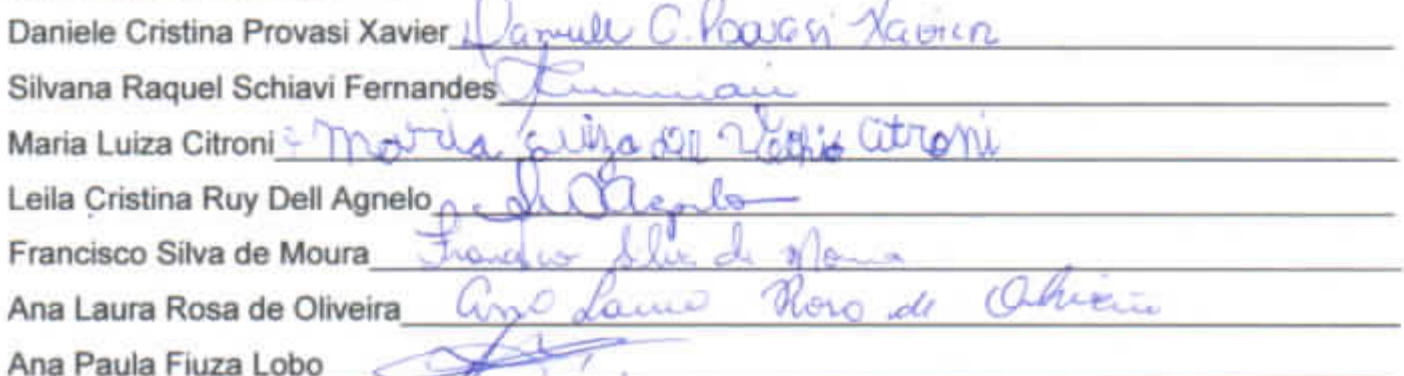 Daniele Cristina Provasi Xavier Daniele C. Provasi Xavier
Silvana Raquel Schiavi Fernandes
Maria Luiza Citroni Maria Luiza Citroni
Leila Cristina Ruy Dell Agnelo
Francisco Silva de Moura Francisco Silva de Moura
Ana Laura Rosa de Oliveira Ana Laura Rosa de Oliveira
Ana Paula Fiuza Lobo